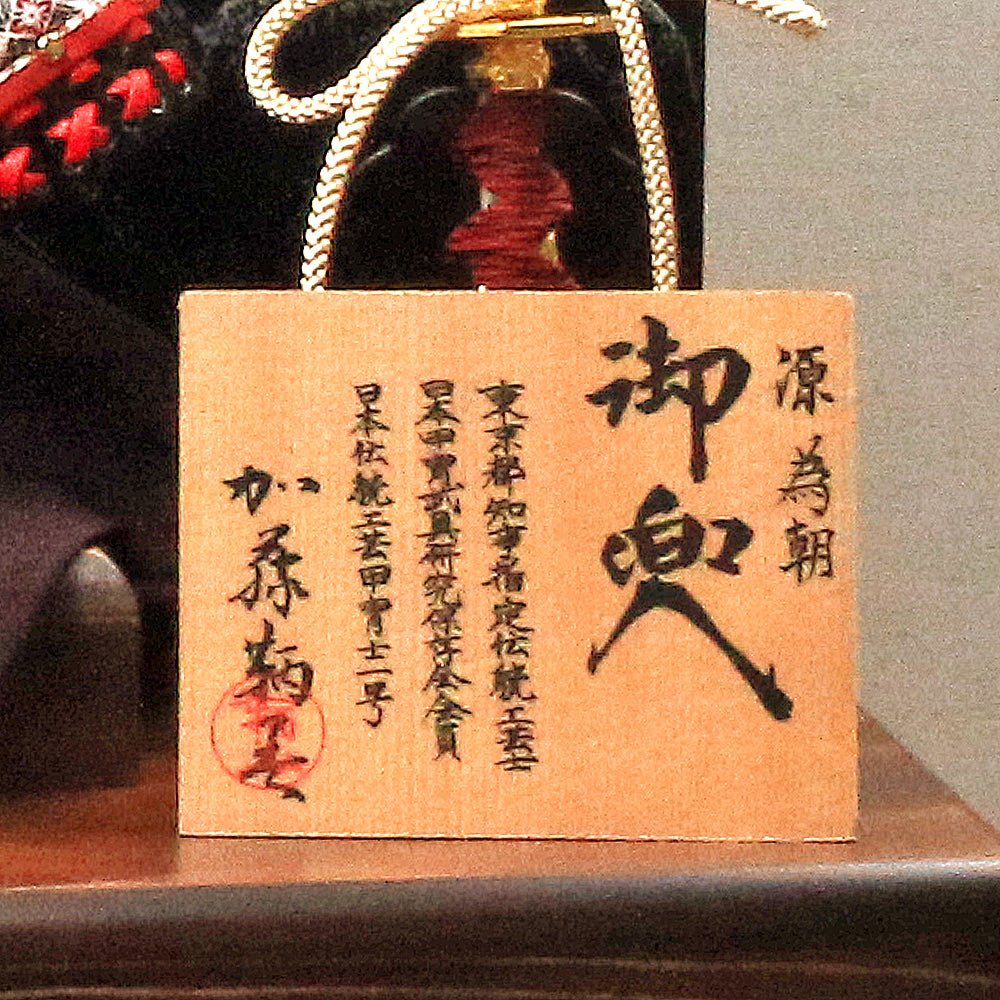 源為朝
御兜
東京都知事指定伝統工芸士
日本甲冑武具研究保存会会員
日本伝統工芸甲冑士一号
加藤鞆美